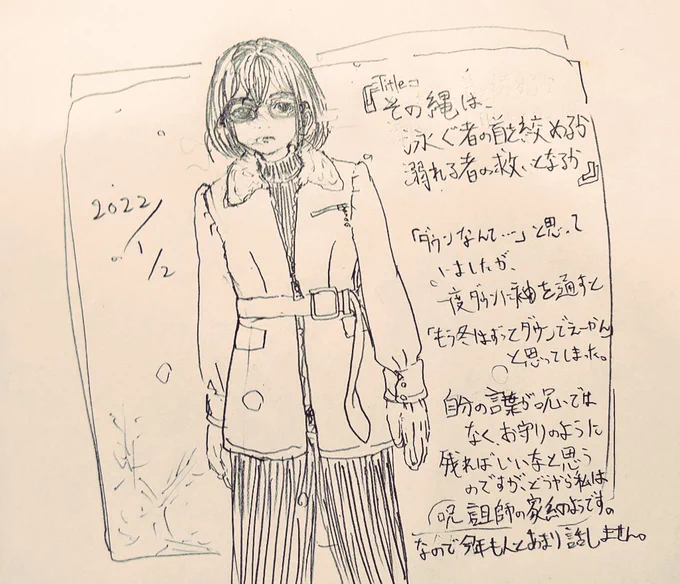 2022/1/2
『Title:
その縄は、
泳ぐ者の首を絞めるか
溺れる者の救いとなるか』
「ダウンなんて…」と思って
いましたが、
一度ダウンに袖を通すと
「もう冬はずっとダウンでえーかん」
と思ってしまった。
自分の言葉が呪いでは
なく、お守りのように
残ればいいなと思う
のですが、どうやら私は
呪詛師の家系のようです。
なので今年も人とあまり話しません。